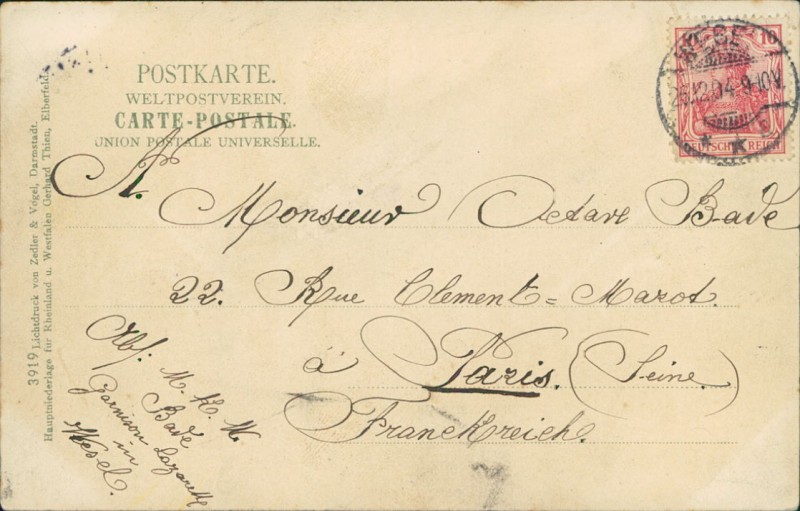 POSTKARTE.
WELTPOSTVEREIN.
CARTE-POSTALE.
UNION POSTALE UNIVERSELLE.
10
DEUTSCHES REICH
26.12.04.9-10V.
A.
Monsieur Octave Bade
22. Rue Clement=Marot.
à Paris. (Seine.)
Franckreich.
Abs. M. K. W.
Bade
Garnison Lazarett
in
Wesel.
3919 Lichtdruck von Zedler & Vogel, Darmstadt.
Hauptniederlage für Rheinland u. Westfalen Gerhard Thien, Elberfeld.